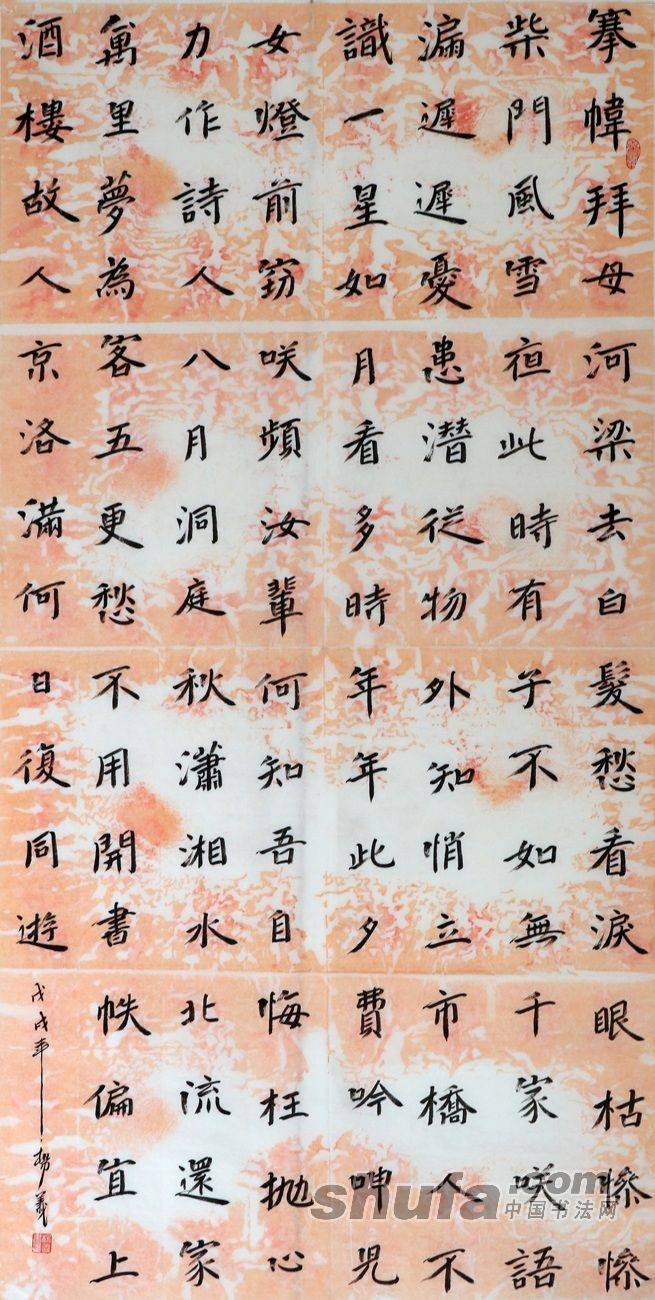 搴幃拜母河梁去白髮愁看淚眼枯慘慘
柴門風雪夜此時有子不如無千家咲語
漏遲遲憂患潛從物外知悄立市橋人不
識一星如月看多時年年此夕費吟呻兒
女燈前窈咲頻汝輩何知吾自悔枉拋心
力作詩人八月洞庭秋瀟湘水北流還家
萬里夢為客五更愁不用開書帙偏宜上
酒樓故人京洛滿何日復同遊
戊戌年
shufa.com
中国书法网